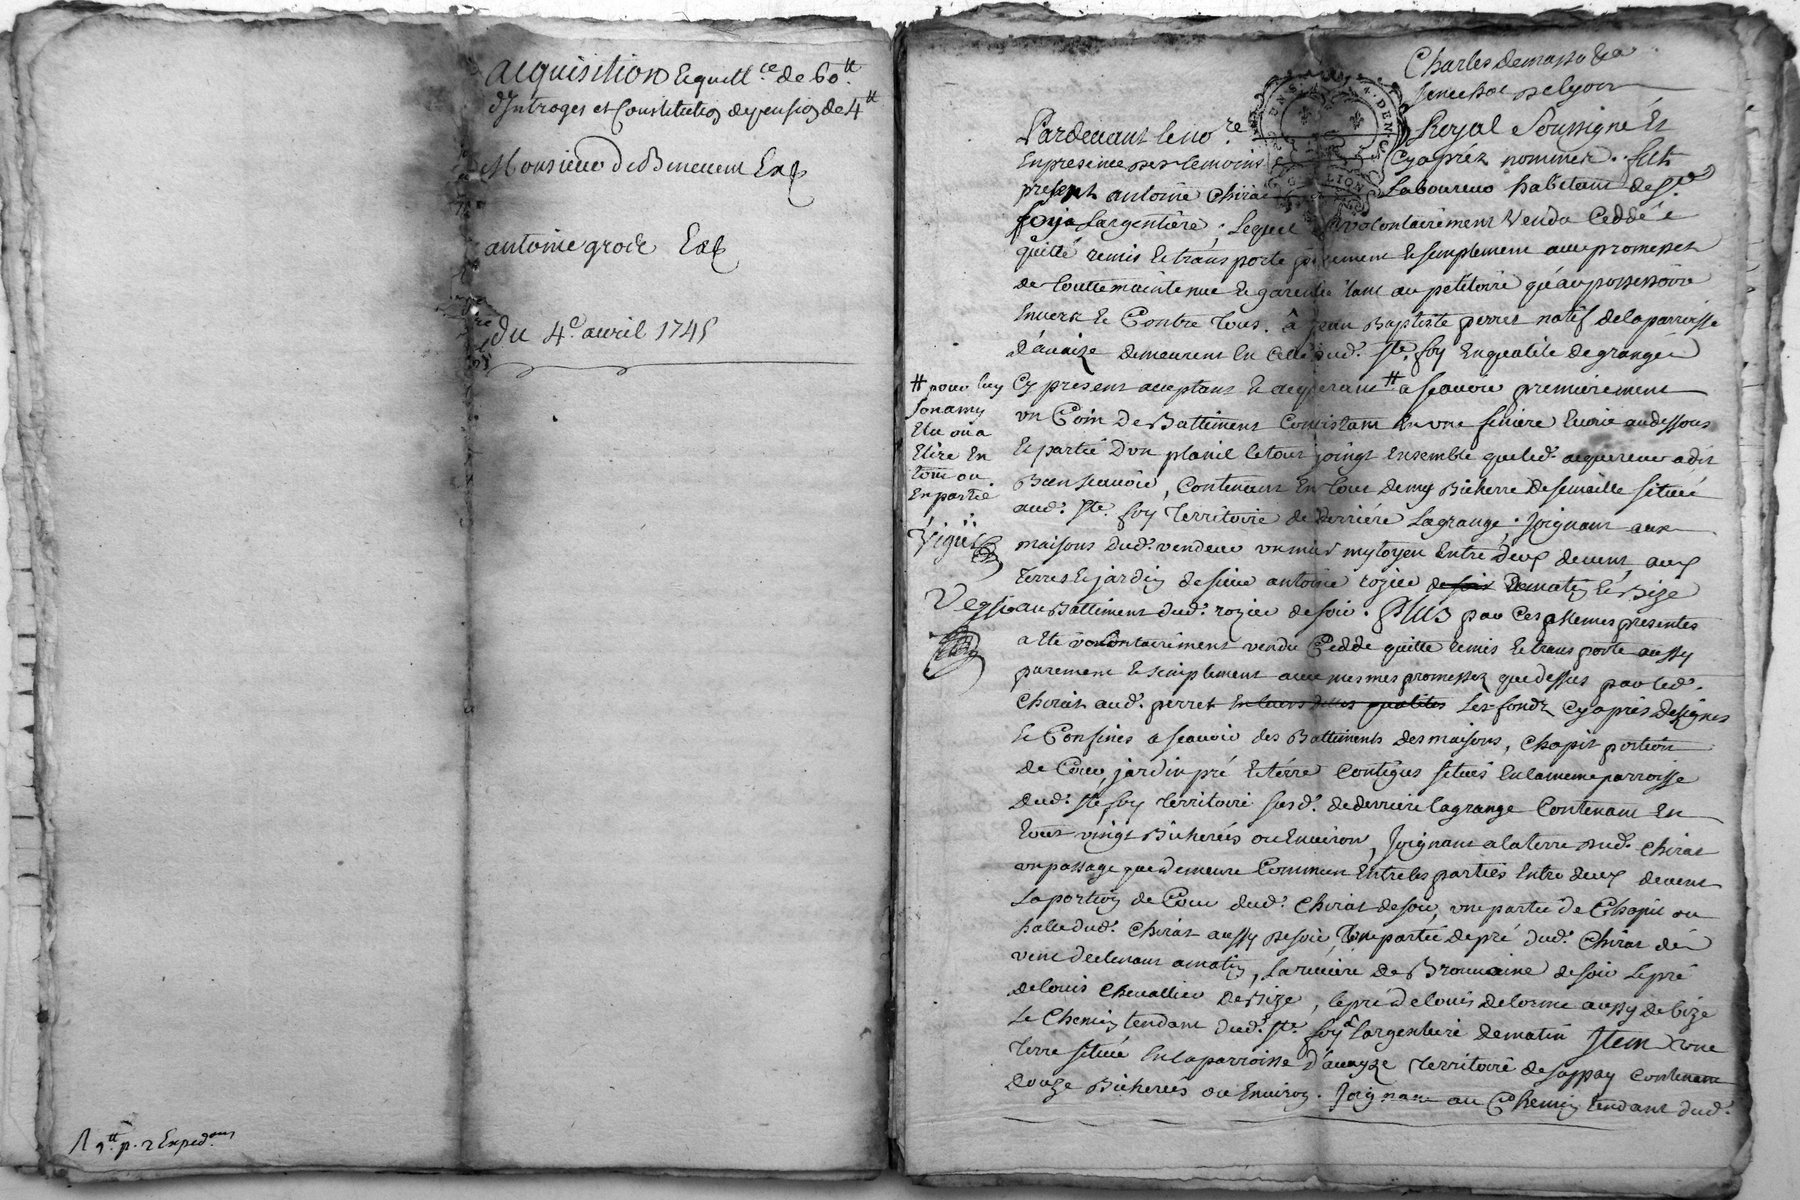 acquisition Et quitt.ce de 60.tt
d'Introges et Constitution de pension de 4tt
Monsieur De Benevent Exp
antoine grode Exp
du 4.e avril 1745
p. 2 Exped.ons
Charles demasso &a
senechal de lyon
Pardevant le no.re Royal Soussigné Et
En presence des temoins Cy après nommez. fut
present antoine Chirat Laboureur habitant de Ste
foy Largentière, Lequel a volontairement Vendu Ceddé é
quitté remis Et transporté purement Et simplement avec promesses
de touttemaintenue Et garentie tant au petitoire qu'au possessoire
Envers Et Contre tous. â jean Baptiste perret natif de la parroisse
d'avaize demeurant En Celle dud. Ste. foy En qualité de granger
Cy present acceptant Et acquerant # a scavoir premierement
un Coin De Battiment Consistant En une feniere Ecurie au dessous
Et partie D'un planil le tout joingt Ensemble que led. acquereur a dit
Bien scavoir, Contenant En tout demy Bicherée de semaille située
aud. Ste. foy Territoire de Derriére Lagrange, joignant aux
maisons Dud. vendeur un mur mytoyen Entre Deux de vent, aux
terres Et jardin de sieur antoine rozier de soir De matin Et Bize
au Battiment dud. rozier de soir. Plus par Ces mesmes presentes
a Eté volontairement vendu Cedde quitte remis Et transporté aussy
purement Et simplement avec mesmes promesses que dessus par led.
Chirat aud. perret En leurs dittes qualités Les fondz Cy aprés Designés
Et Confinés a scavoir des Battiments des maisons, Chapit portion
de Cour, jardin pré Et térre Contigus situés En la meme parroisse
dud. Ste. foy territoire susd. de derriere lagrange Contenant En
tout vingt Bicherées ou Environ, Joignant a la terre dud. Chirat
un passage que demeure Commun Entre les parties Entre deux de vent
La portion de Cour dud. Chirat de soir, une partie de Chapit ou
halle dud. Chirat aussy de soir, Une partie de pré dud. Chirat de
vent declinant a matin, La riviére De Brevenne de soir Le pré
de louis Chevallier De Bize, le pré de louis delorme aussy de bize
Le Chemin tendant dud. Ste. foy a Largentiere De matin Item une
terre située En la parroisse d'avayze territoire de sappay Contenant
douze Bicherées ou Environ. Joignant au Chemin tendant dud.
# pour luy
son amy
Elu ou a
Elire En
tout ou
En partie